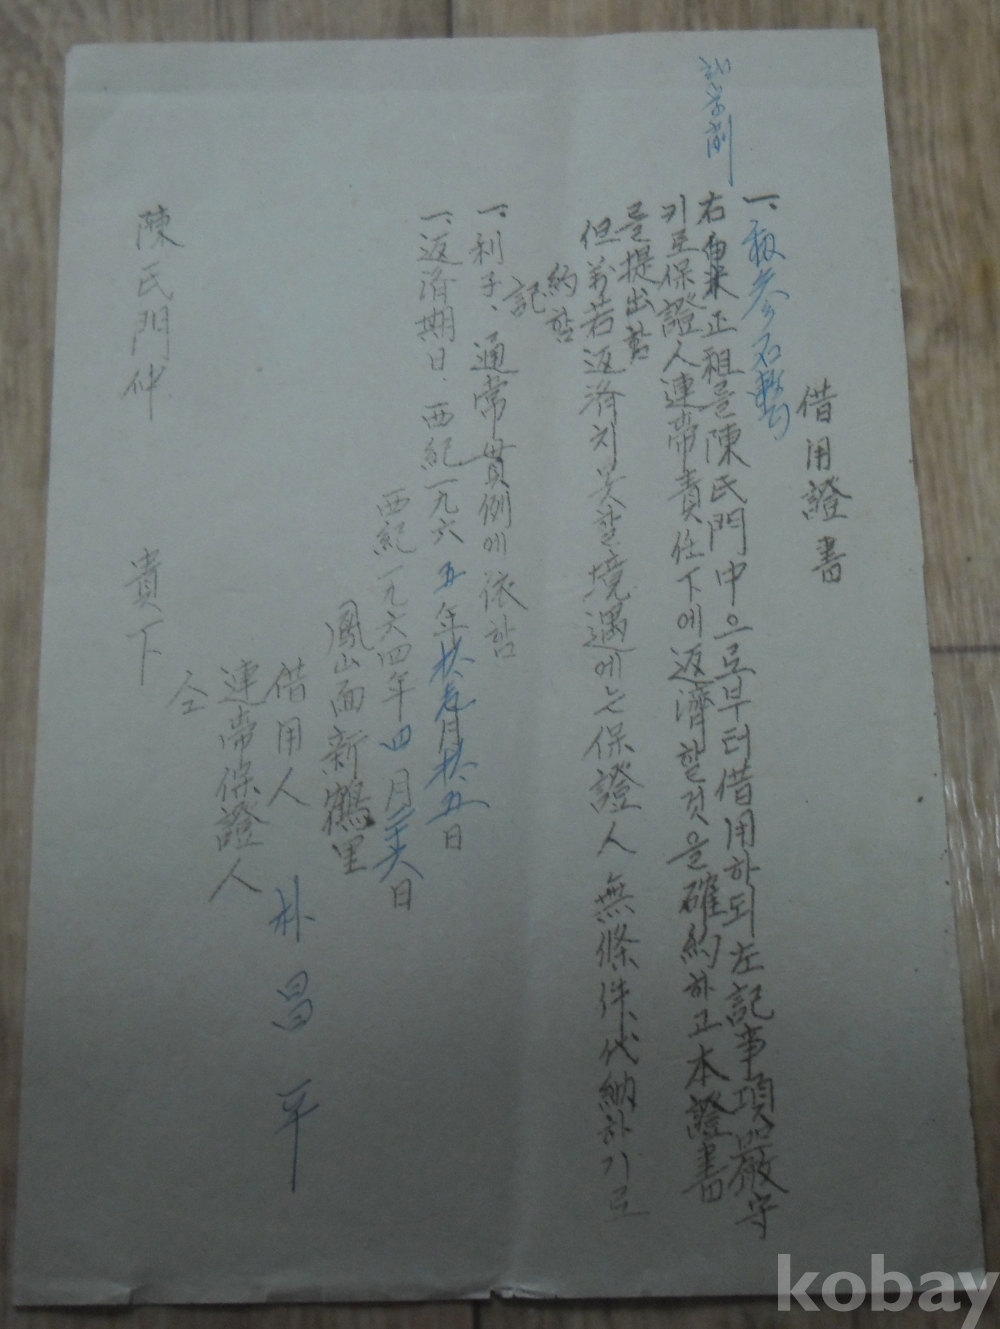 借用證書
一、租參石整
右白米正租를陳氏門中으로부터借用하되左記事項嚴守
키로保證人連帶責任下에返濟할것을確約하고本證書
를提出함
但萬若返済치못할境遇에는保證人無條件代納하기로
約함
記
一、利子、通常母貝例에依함
一、返済期日、西紀一九六五年拾壱月拾五日
西紀一九六四年四月二十六日
鳳山面新鶴里
借用人 朴昌平
連帶保證人
仝
陳氏門仲 貴下
kobay